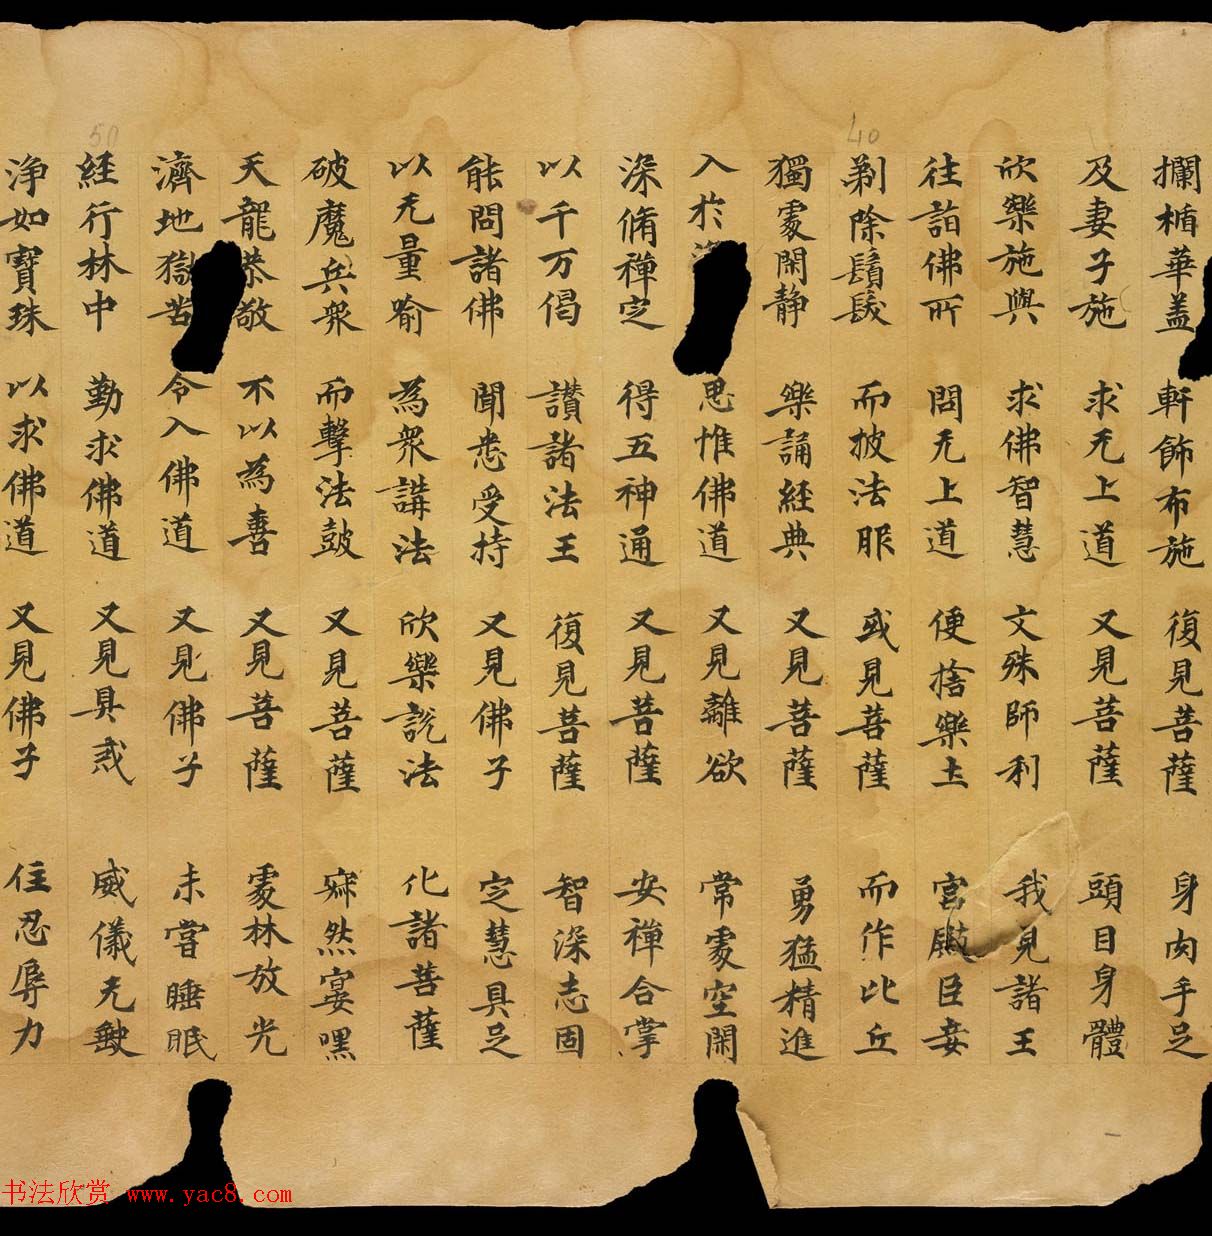 攔楯華盖 軒飾布施 復見菩薩 身肉手足
及妻子施 求无上道 又見菩薩 頭目身體
欣樂施與 求佛智慧 文殊師利 我見諸王
往詣佛所 問无上道 便捨樂土 宮殿臣妾
剃除鬚髮 而披法服 或見菩薩 而作比丘
獨處閑静 樂誦經典 又見菩薩 勇猛精進
入於 思惟佛道 又見離欲 常處空閑
深脩禪定 得五神通 又見菩薩 安禪合掌
以千万偈 讃諸法王 復見菩薩 智深志固
能問諸佛 聞悉受持 又見佛子 定慧具足
以无量喻 為衆講法 欣樂説法 化諸菩薩
破魔兵衆 而擊法鼓 又見菩薩 寂然宴嘿
天龍恭敬 不以為喜 又見菩薩 處林放光
濟地獄苦 令入佛道 又見佛子 未嘗睡眠
經行林中 勤求佛道 又見具戒 威儀无缺
浄如寶珠 以求佛道 又見佛子 住忍辱力
40
50
书法欣赏 www.yac8.com